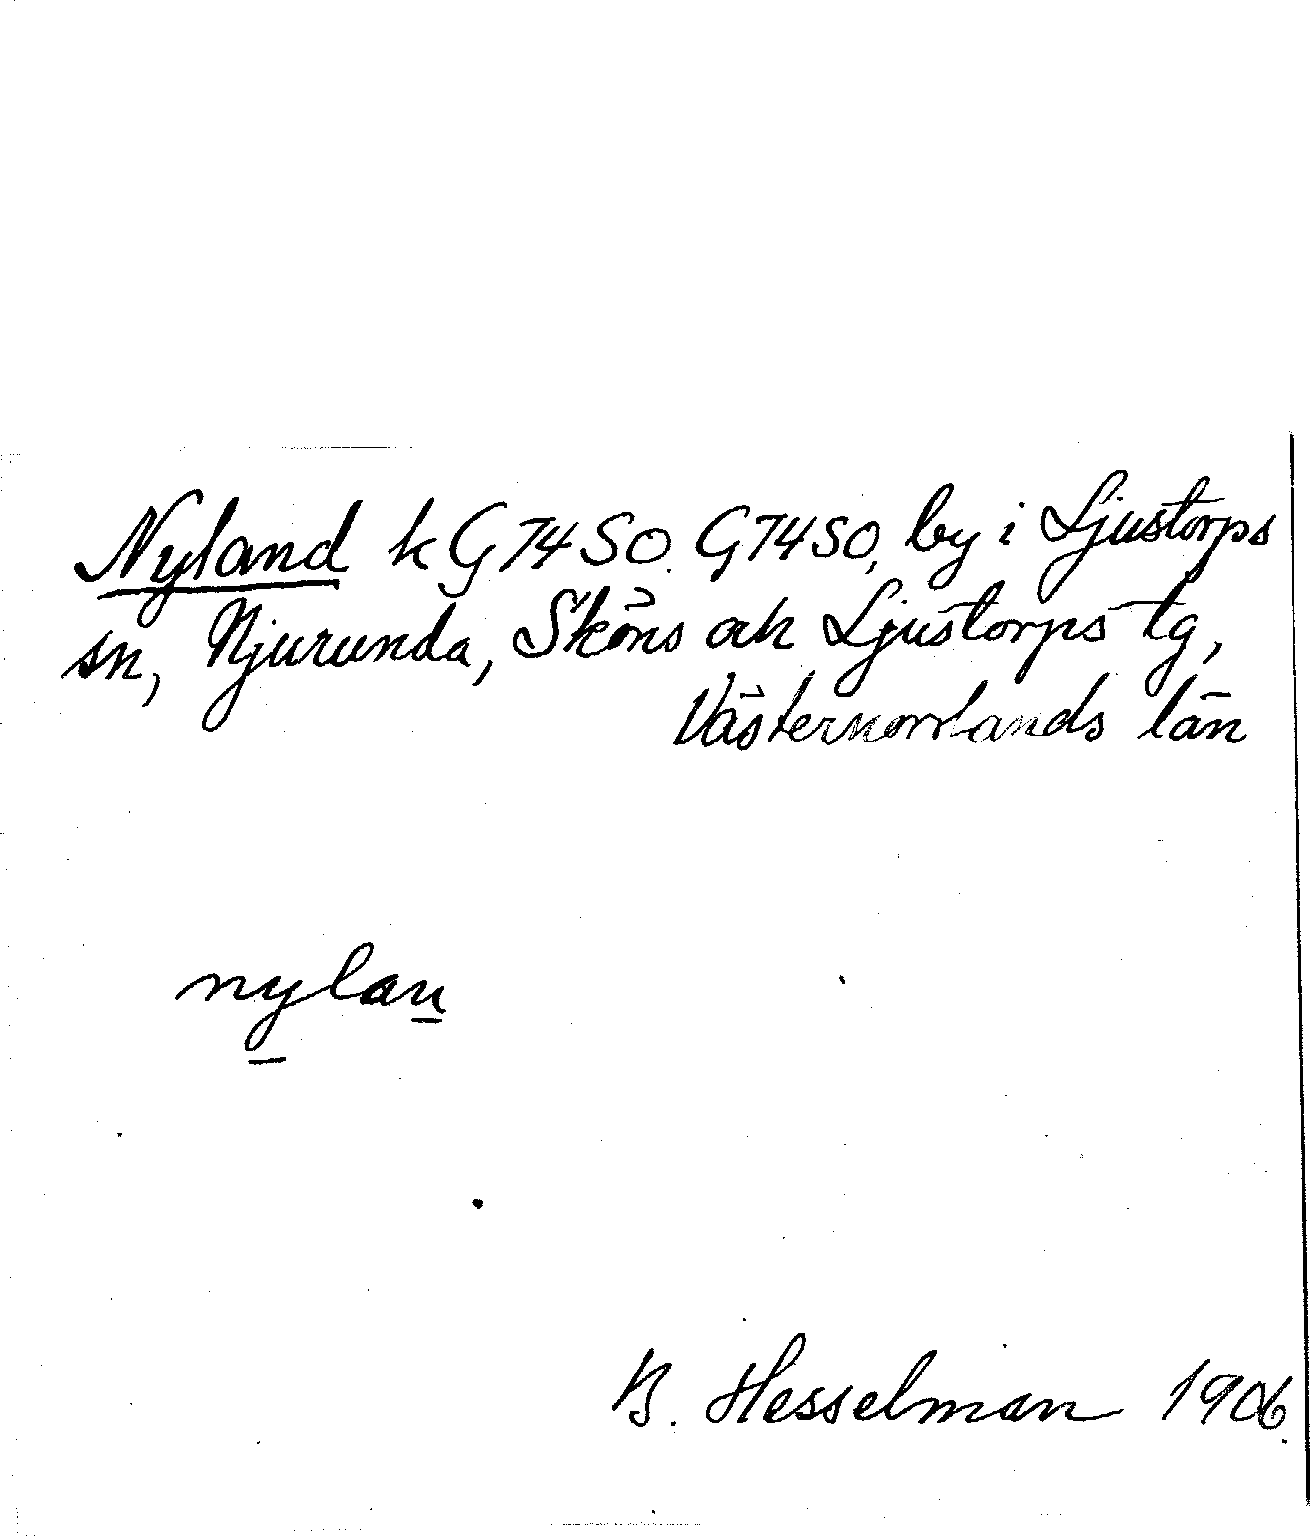 Nyland k G74SO. G74SO, by i Ljustorps
sn, Njurunda, Sköns och Ljustorps tg,
Västernorrlands län
nylan
B. Hesselman 1906.